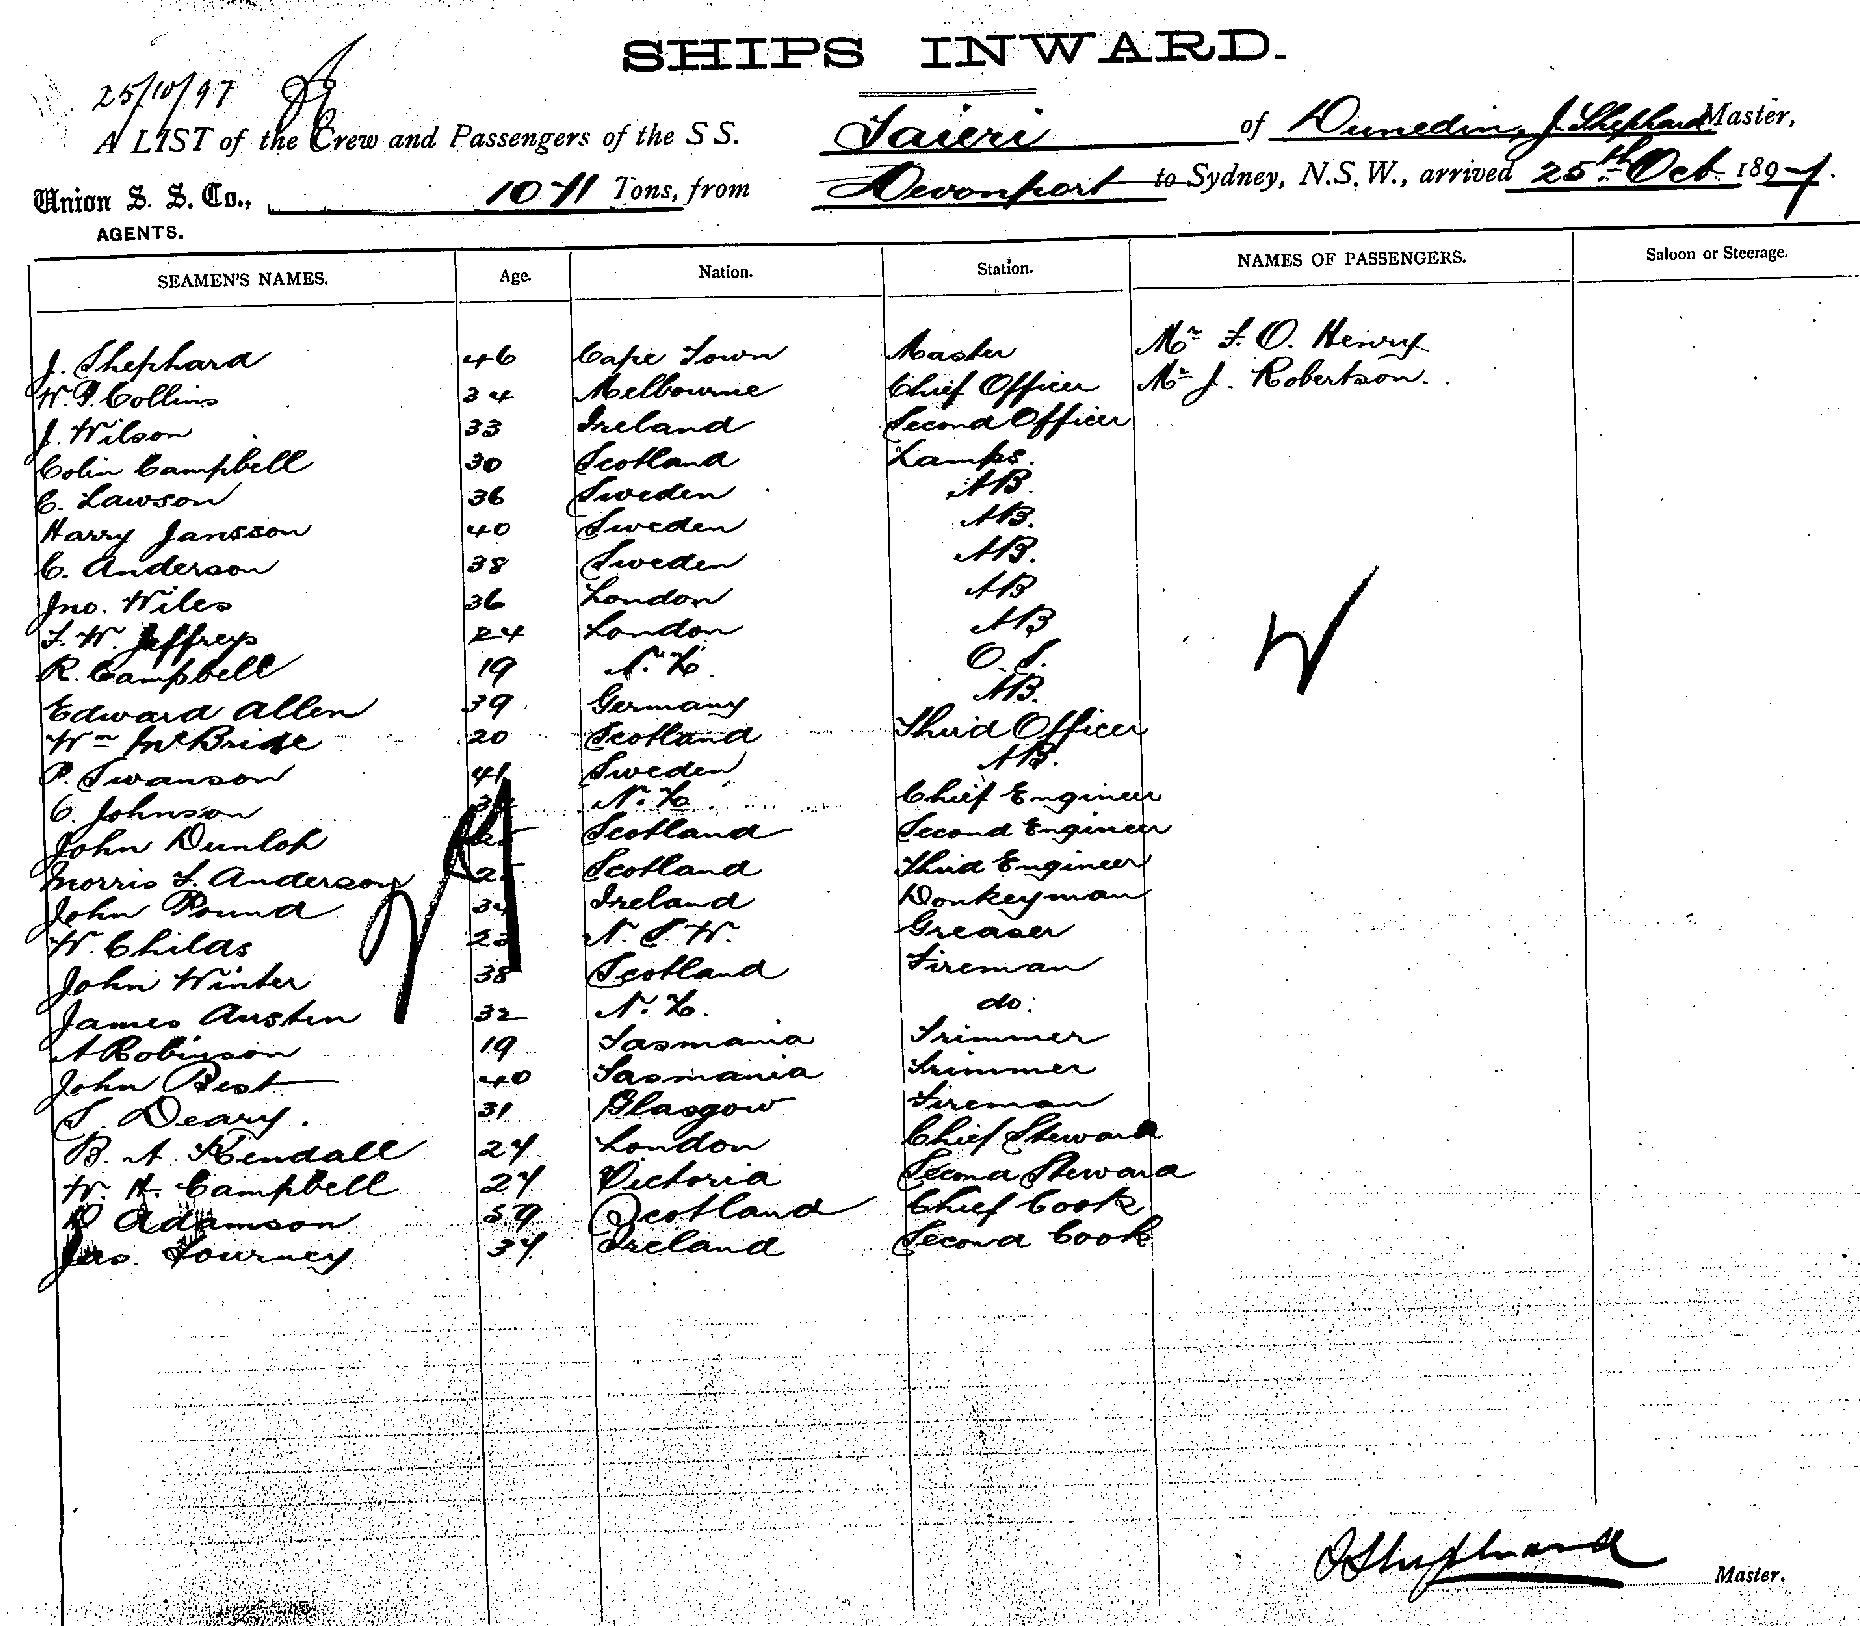 SHIPS INWARD.
25/10/97
A LIST of the Crew and Passengers of the S S. Taieri of Dunedin, J. Shephard Master,
Union S. S. Co., 1071 Tons, from Devonport to Sydney, N.S.W., arrived 25th Oct. 1897.
AGENTS.
SEAMEN'S NAMES. Age. Nation. Station. NAMES OF PASSENGERS. Saloon or Steerage.
J. Shephard 46 Cape Town Master Mr F. O. Henry
W. P. Collins 34 Melbourne Chief Officer Mr J. Robertson.
J. Wilson 33 Ireland Second Officer
Colin Campbell 30 Scotland Lamps.
C. Lawson 36 Sweden AB.
Harry Jansson 40 Sweden AB.
C. Anderson 38 Sweden AB.
Jno. Wiles 36 London AB
F. W. Jeffreys 24 London AB
R. Campbell 19 N. Z. O. S.
Edward Allen 39 Germany AB.
Wm McBride 20 Scotland Third Officer
P. Swanson 41 Sweden AB.
C. Johnson N. Z. Chief Engineer
John Dunlop Scotland Second Engineer
Morris F. Anderson Scotland Third Engineer
John Pound 34 Ireland Donkeyman
W. Childs 23 N. S. W. Greaser
John Winter 38 Scotland Fireman
James Austin 32 N. Z. do.
A Robinson 19 Tasmania Trimmer
John Best 40 Tasmania Trimmer
T. Deary. 31 Glasgow Fireman
B. A. Kendall 27 London Chief Steward
W. H. Campbell 27 Victoria Second Steward
D Adamson 59 Scotland Chief Cook
Jas. Tourney 37 Ireland Second Cook
J Shephard Master.